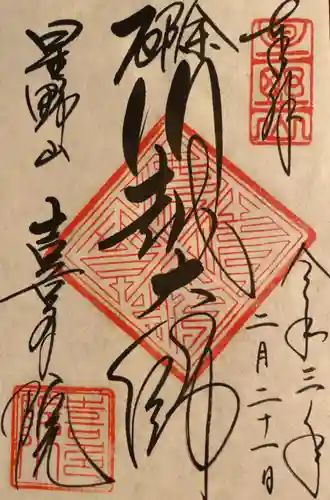 奉拝
令和三年
二月二十一日
厄除
川越大師
星野山
喜多院